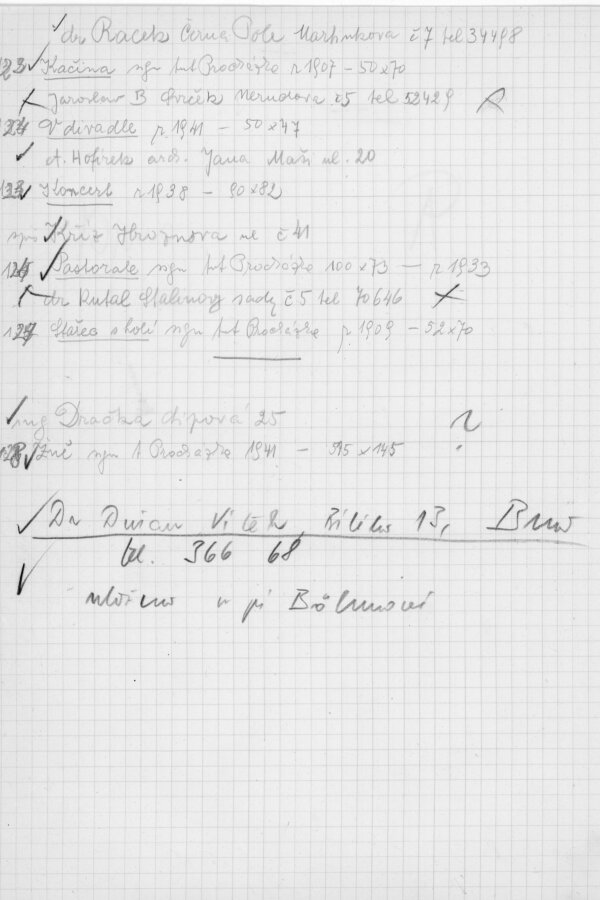 dr Racek Černá Pole Martinkova č 7 tel 34498
123 Kačina sgn Ant Procházka r 1907 – 50x70
Jaroslav B Svrček Nerudova č5 tel 52429
124 V divadle r 1941 – 50x47
A. Hofírek arch. Jana Maří ul. 20
Koncert r 1938 – 90x82
Kříž Hroznova ul č 41
Pastorale sgn Ant Procházka 100x73 – r 1933
dr Kutal Stalinovy sady č 5 tel 70646
127 Stařec s holí sgn Ant Procházka r. 1909 – 52x70
ing Dračka Lipová 25 ?
128 Žně sgn A Procházka 1941 – x145
Dr Dušan Vítek, Bílého 13, Brno
tel. 366 68
uloženo u pí Böhmové